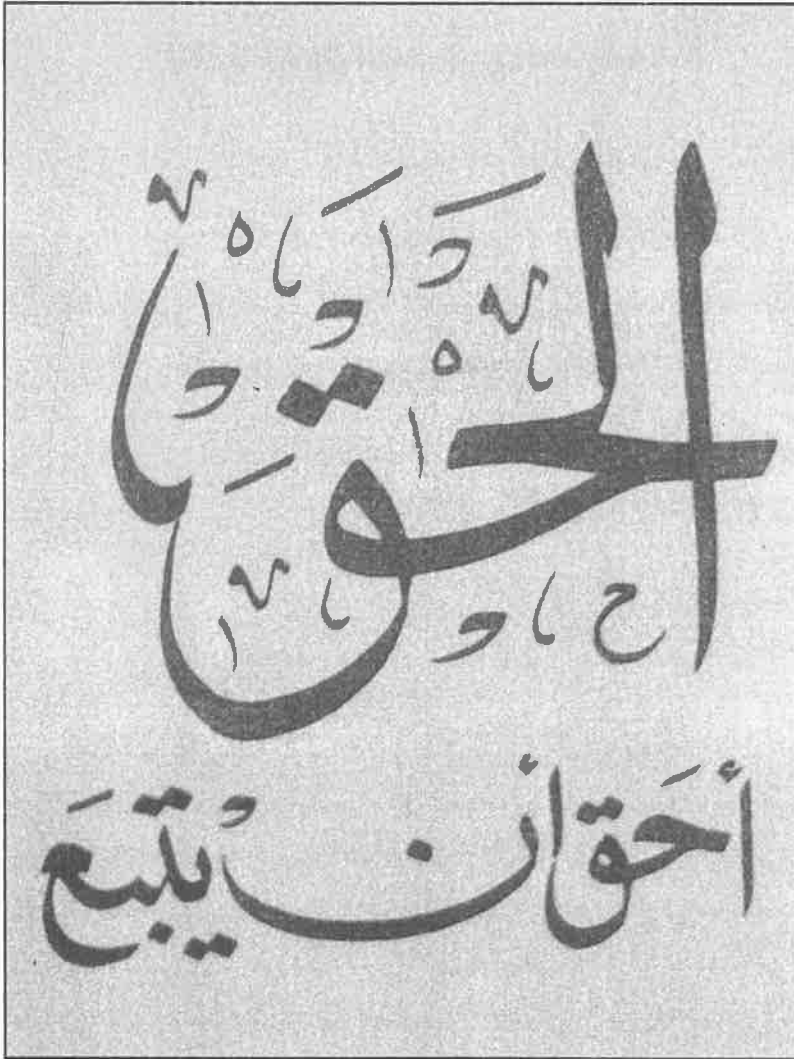 الحق
أَحَق أن يتبعَ